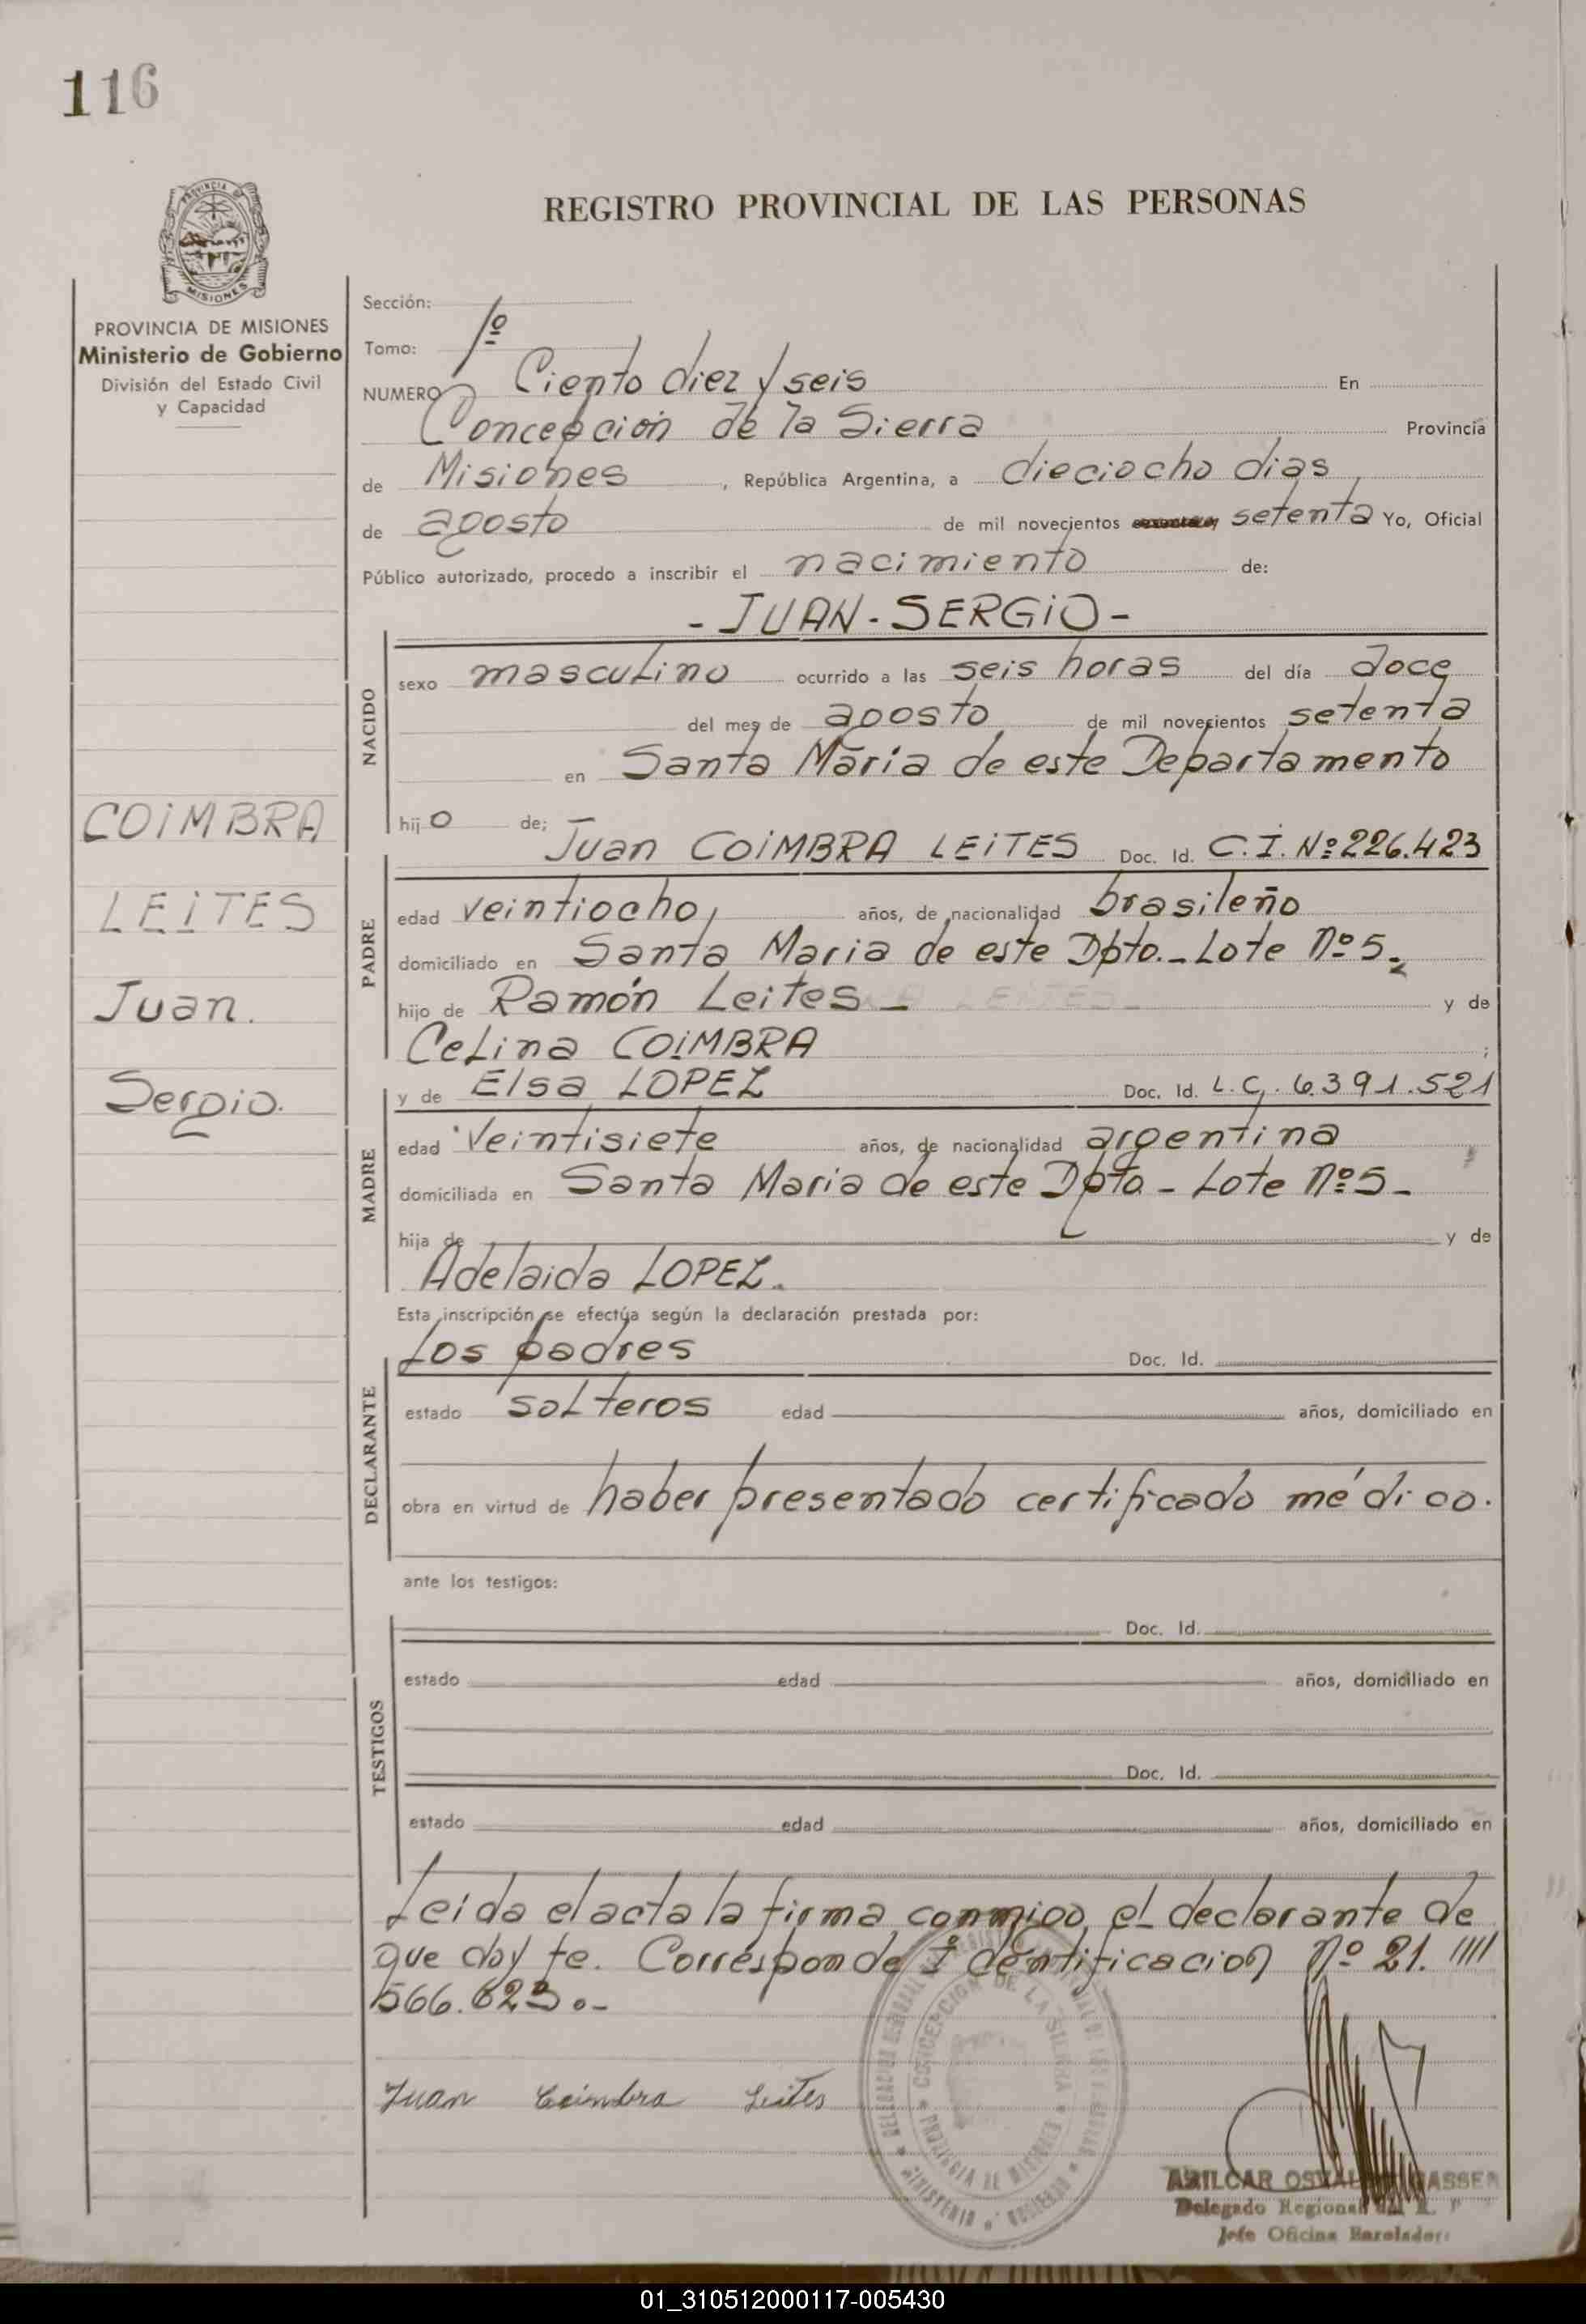 116
PROVINCIA DE
MISIONES
PROVINCIA DE MISIONES
Ministerio de Gobierno
División del Estado Civil
y Capacidad
COIMBRA
LEITES
Juan.
Sergio.
REGISTRO PROVINCIAL DE LAS PERSONAS
Sección:
Tomo: 1º
NUMERO Ciento diez y seis En
Concepción de la Sierra Provincia
de Misiones , República Argentina, a dieciocho dias
de agosto de mil novecientos setenta Yo, Oficial
Público autorizado, procedo a inscribir el nacimiento de:
- JUAN - SERGIO -
NACIDO
sexo masculino ocurrido a las seis horas del día doce
del mes de agosto de mil novecientos setenta
en Santa María de este Departamento
hijo de; Juan COIMBRA LEITES Doc. Id. C.I. Nº 226.423
PADRE
edad veintiocho, años, de nacionalidad brasileño
domiciliado en Santa Maria de este Dpto. - Lote Nº 5.
hijo de Ramón Leites - y de
Celina COIMBRA ;
y de Elsa LOPEZ Doc. Id. L.C. 6.391.521
MADRE
edad veintisiete años, de nacionalidad argentina
domiciliada en Santa Maria de este Dpto - Lote Nº 5 -
hija de y de
Adelaida LOPEZ.
Esta inscripción se efectúa según la declaración prestada por:
Los padres Doc. Id.
DECLARANTE
estado solteros edad años, domiciliado en
obra en virtud de haber presentado certificado médico.
ante los testigos:
TESTIGOS
Doc. Id.
estado edad años, domiciliado en
Doc. Id.
estado edad años, domiciliado en
Leida el acta la firma conmigo el declarante de
que doy fe. Corresponde Identificacion Nº 21. ////
566.623.-
Juan Coimbra Leites
CONCEPCION DE LA SIERRA
PROVINCIA DE MISIONES
MINISTERIO DE GOBIERNO
Delegado Regional
Jefe Oficina
01_310512000117-005430